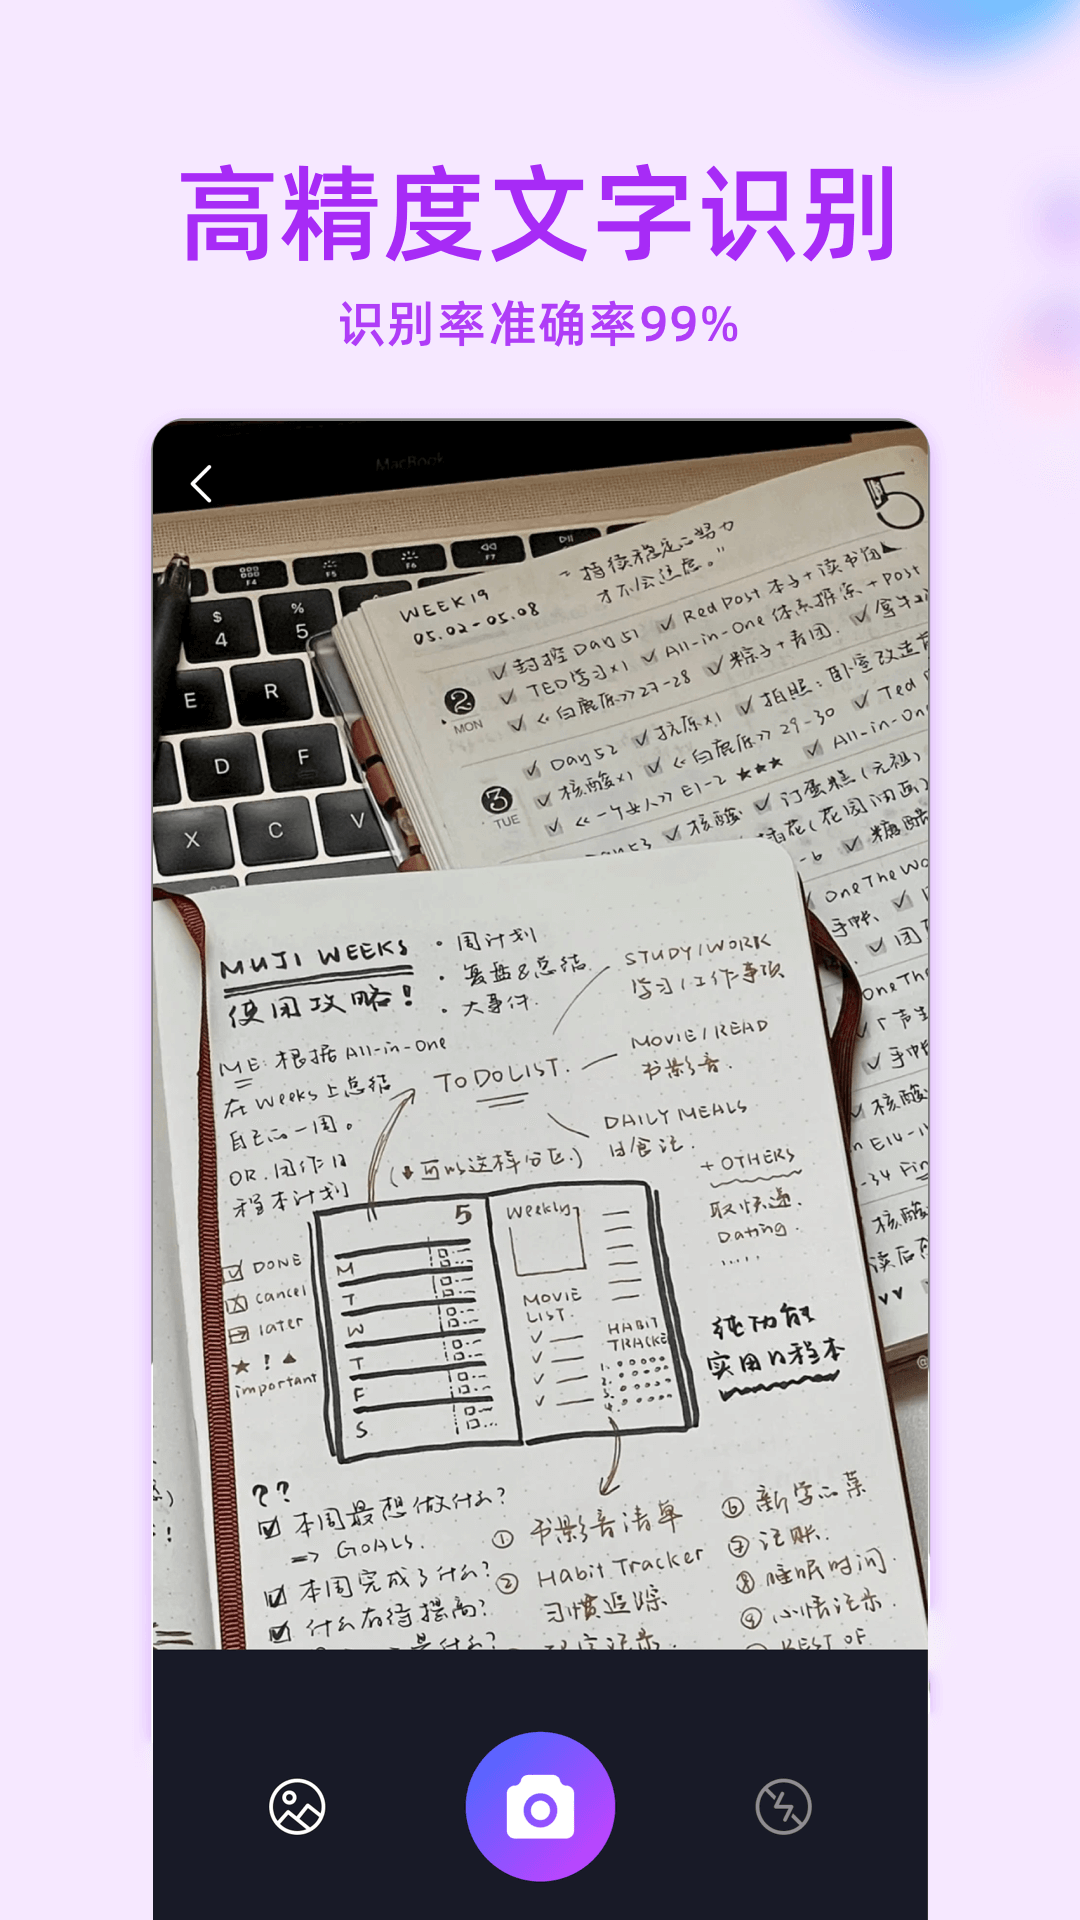 高精度文字识别
识别率准确率99%
MacBook
F4
F5
F6
F7
$
4
%
5
E
R
D
F
X
C
V
5
WEEK19
05.02-05.08
"持续稳定的努力
才不会焦虑。"
2
MON
✓封控Day51 ✓Red Post本子+读书
✓TED学习x1 ✓All-in-One体系探索+Post
✓《白鹿原》27-28 ✓粽子+青团.
3
TUE
✓Day52 ✓抗原x1 ✓拍照:卧室改造
✓核酸x1 ✓《白鹿原》29-30 ✓Ted
✓《一个女人》E1-2 ★★★ ✓All-in-On
✓核酸 ✓订蛋糕(元祖)
✓糖醋
OneTheWo
手帐.
✓团
OneTh
✓手帐
✓核酸
E14-1
-34 Fin
核酸
读后
MUJI WEEKS
使用攻略!
·周计划
·复盘&总结.
·大事件.
ME:根据All-in-One
在Weeks上总结
自己的一周。
OR.用作日
程本计划
TO DO LIST.
STUDY/WORK
学习/工作事项
MOVIE/READ
书影音.
DAILY MEALS
日食记.
+OTHERS
取快递.
Dating.
.....
(↓可以这样分区.)
5
M
T
W
T
F
S
Weekly
MOVIE
LIST.
HABIT
TRACKE
1.
2.
3.
4.
DONE
cancel
later
★!▲
important
纯功能
实用日程本
??
本周最想做什么?
=>GOALS.
本周完成了什么?
什么有待提高?
是什么?
① 书影音清单
② Habit Tracker
习惯追踪
⑥ 新学的菜
⑦ 记账.
⑧ 睡眠时间.
⑨ 心情记录.
BEST OF